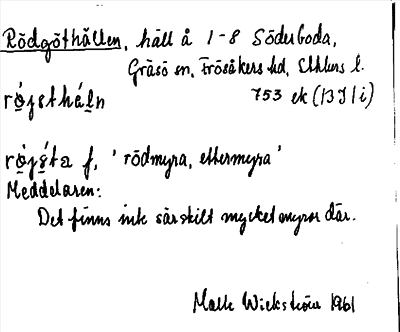 Rödgöthällen, häll å 1-8 Söderboda,
Gräsö sn, Frösåkers hd, Sthlms l.
753 ek (13 I 1 i)
röjsta f, 'rödmyra, ettermyra'
Meddelaren:
Det finns inte särskilt mycket myror där.
Wickström 1961